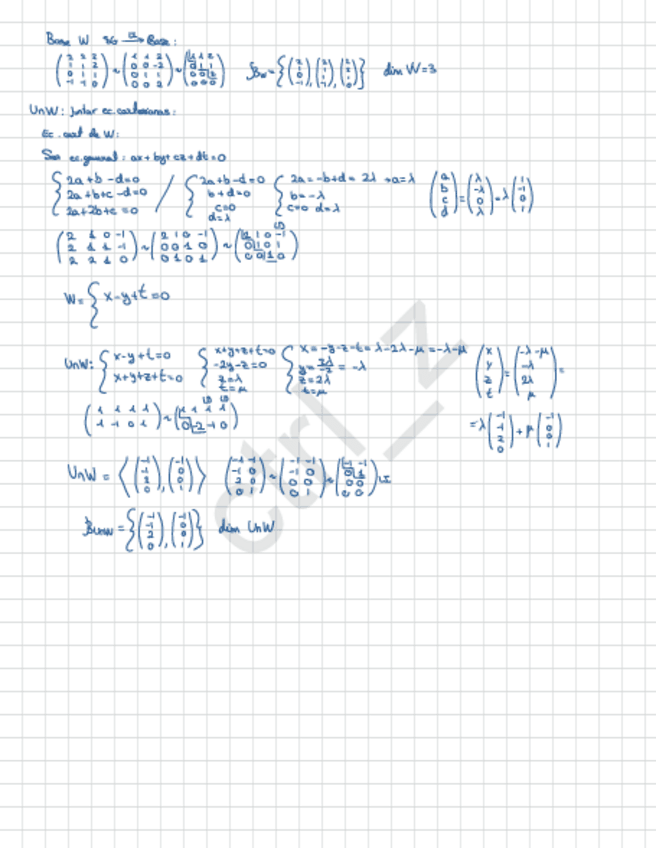 Base W SG → Base:
(2 2 2 / 1 1 2 / 0 1 1 / -1 -1 0) ~ (1 1 2 / 0 0 -2 / 0 1 1 / 0 0 2) ~ (1 1 2 / 0 1 1 / 0 0 2 / 0 0 0) B_W = { } dim W=3
UnW: Juntar ec. cartesianas:
Ec. cart de W:
Sea ec. general: ax + by + cz + dt = 0
{ 2a+b-d=0 / 2a+b+c-d=0 / 2a+2b+c=0 / { 2a+b-d=0 / b+d=0 / c=0 / d=λ { 2a=-b+d=2λ → a=λ / b=-λ / c=0 d=λ (a / b / c / d) = (λ / -λ / 0 / λ) = λ (1 / -1 / 0 / 1)
(2 1 0 -1 / 2 1 1 -1 / 2 2 1 0) ~ (2 1 0 -1 / 0 0 1 0 / 0 1 0 1) ~ (2 1 0 -1 / 0 1 0 1 / 0 0 1 0)
W = { x-y+t=0
UnW: { x-y+t=0 / x+y+z+t=0 { x+y+z+t=0 / -2y-z=0 / z=λ / t=μ { x=-y-z-t=λ-2λ-μ=-λ-μ / y=2λ/-2=-λ / z=2λ / t=μ (x / y / z / t) = (-λ-μ / -λ / 2λ / μ) =
(1 1 1 1 / 1 -1 0 1) ~ (1 1 1 1 / 0 -2 -1 0) = λ (-1 / -1 / 2 / 0) + μ (-1 / 0 / 0 / 1)
UnW = ⟨(-1 / -1 / 2 / 0), (-1 / 0 / 0 / 1)⟩ (-1 -1 / -1 0 / 2 0 / 0 1) ~ (-1 -1 / -1 0 / 0 0 / 0 1) ~ (-1 -1 / 0 1 / 0 0 / 0 0) LI
B_UnW = {(-1 / -1 / 2 / 0), (-1 / 0 / 0 / 1)} dim UnW
ctrl_z